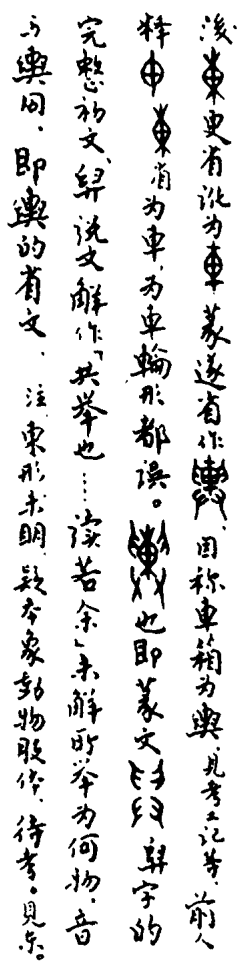 後東更省訛为車，篆遂省作輿，因称車箱为輿，見考工记等，前人
释申、東省为車，为車輪形都误。也即篆文舁字的
完整初文，舁说文解作「共举也……读若余」未解所举为何物，音
与輿同，即輿的省文、注，東形未明，疑本象動物肢体，待考。見东。